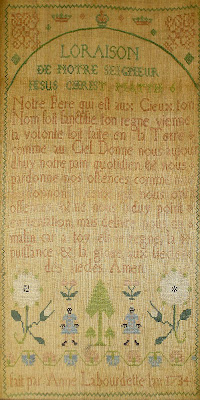 LORAISON
DE NOTRE SEIGNEUR
IESUS CHRIST
Notre Pere qui est aux Cieux ton
Nom soit sanctifié ton regne vienne
ta volonte soit faite en la Terre
comme au Ciel Donne nous aujou
d'huy notre pain quotidien
pardonne nos offences comme nous
mais delivre nous du
malin car a toy est le regne, la
puissance & la gloire aux siecles
des siecles Amen
fait par Anne Labourdette 1734